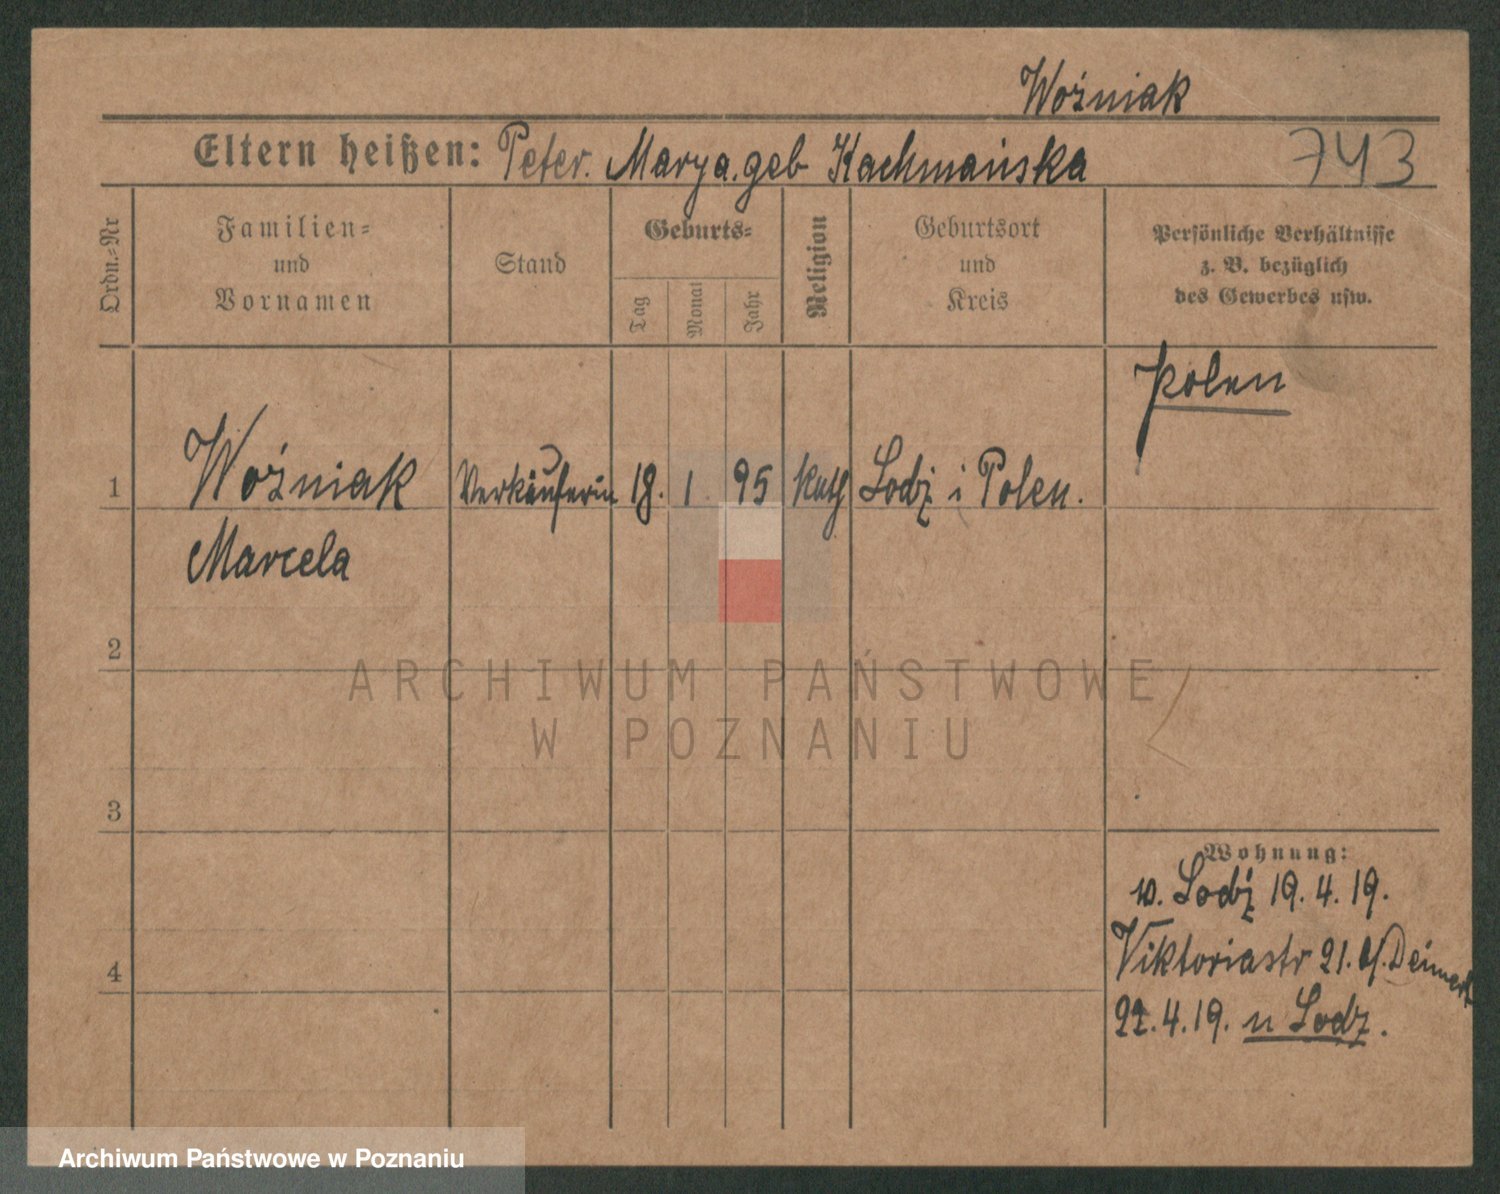 Woźniak
Eltern heißen: Peter. Marya. geb Kachmańska 743
Ordn.-Nr
Familien=
und
Vornamen
Stand
Geburts=
Tag
Monat
Jahr
Religion
Geburtsort
und
Kreis
Persönliche Verhältnisse
z. B. bezüglich
des Gewerbes usw.
Polen
1 Woźniak Verkäuferin 18. 1. 95 Kath Lodż i Polen.
Marcela
2
ARCHIWUM PAŃSTWOWE
W POZNANIU
3
Wohnung:
w. Lodż 19. 4. 19.
4 Viktoriastr 21.
22. 4. 19. n Lodz.
Archiwum Państwowe w Poznaniu